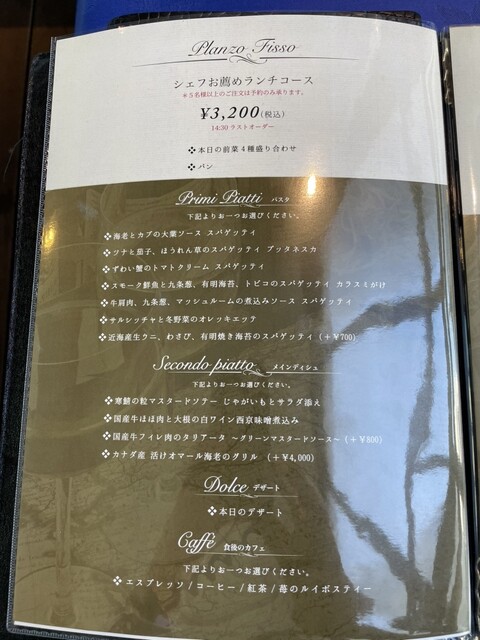 Planzo Fisso
シェフお薦めランチコース
＊5名様以上のご注文は予約のみ承ります。
¥3,200(税込)
14:30 ラストオーダー
❖本日の前菜4種盛り合わせ
❖パン
Primi Piatti パスタ
下記よりお一つお選びください。
❖海老とカブの大葉ソース スパゲッティ
❖ツナと茄子、ほうれん草のスパゲッティ プッタネスカ
❖ずわい蟹のトマトクリーム スパゲッティ
❖スモーク鮮魚と九条葱、有明海苔、トビコのスパゲッティ カラスミがけ
❖牛肩肉、九条葱、マッシュルームの煮込みソース スパゲッティ
❖サルシッチャと冬野菜のオレッキエッテ
❖近海産生ウニ、わさび、有明焼き海苔のスパゲッティ(+¥700)
Secondo piatto メインディシュ
下記よりお一つお選びください。
❖寒鰆の粒マスタードソテー じゃがいもとサラダ添え
❖国産牛ほほ肉と大根の白ワイン西京味噌煮込み
❖国産牛フィレ肉のタリアータ ～グリーンマスタードソース～(+¥800)
❖カナダ産 活けオマール海老のグリル (+¥4,000)
Dolce デザート
❖本日のデザート
Caffè 食後のカフェ
下記よりお一つお選びください。
❖エスプレッソ/コーヒー/紅茶/苺のルイボスティー